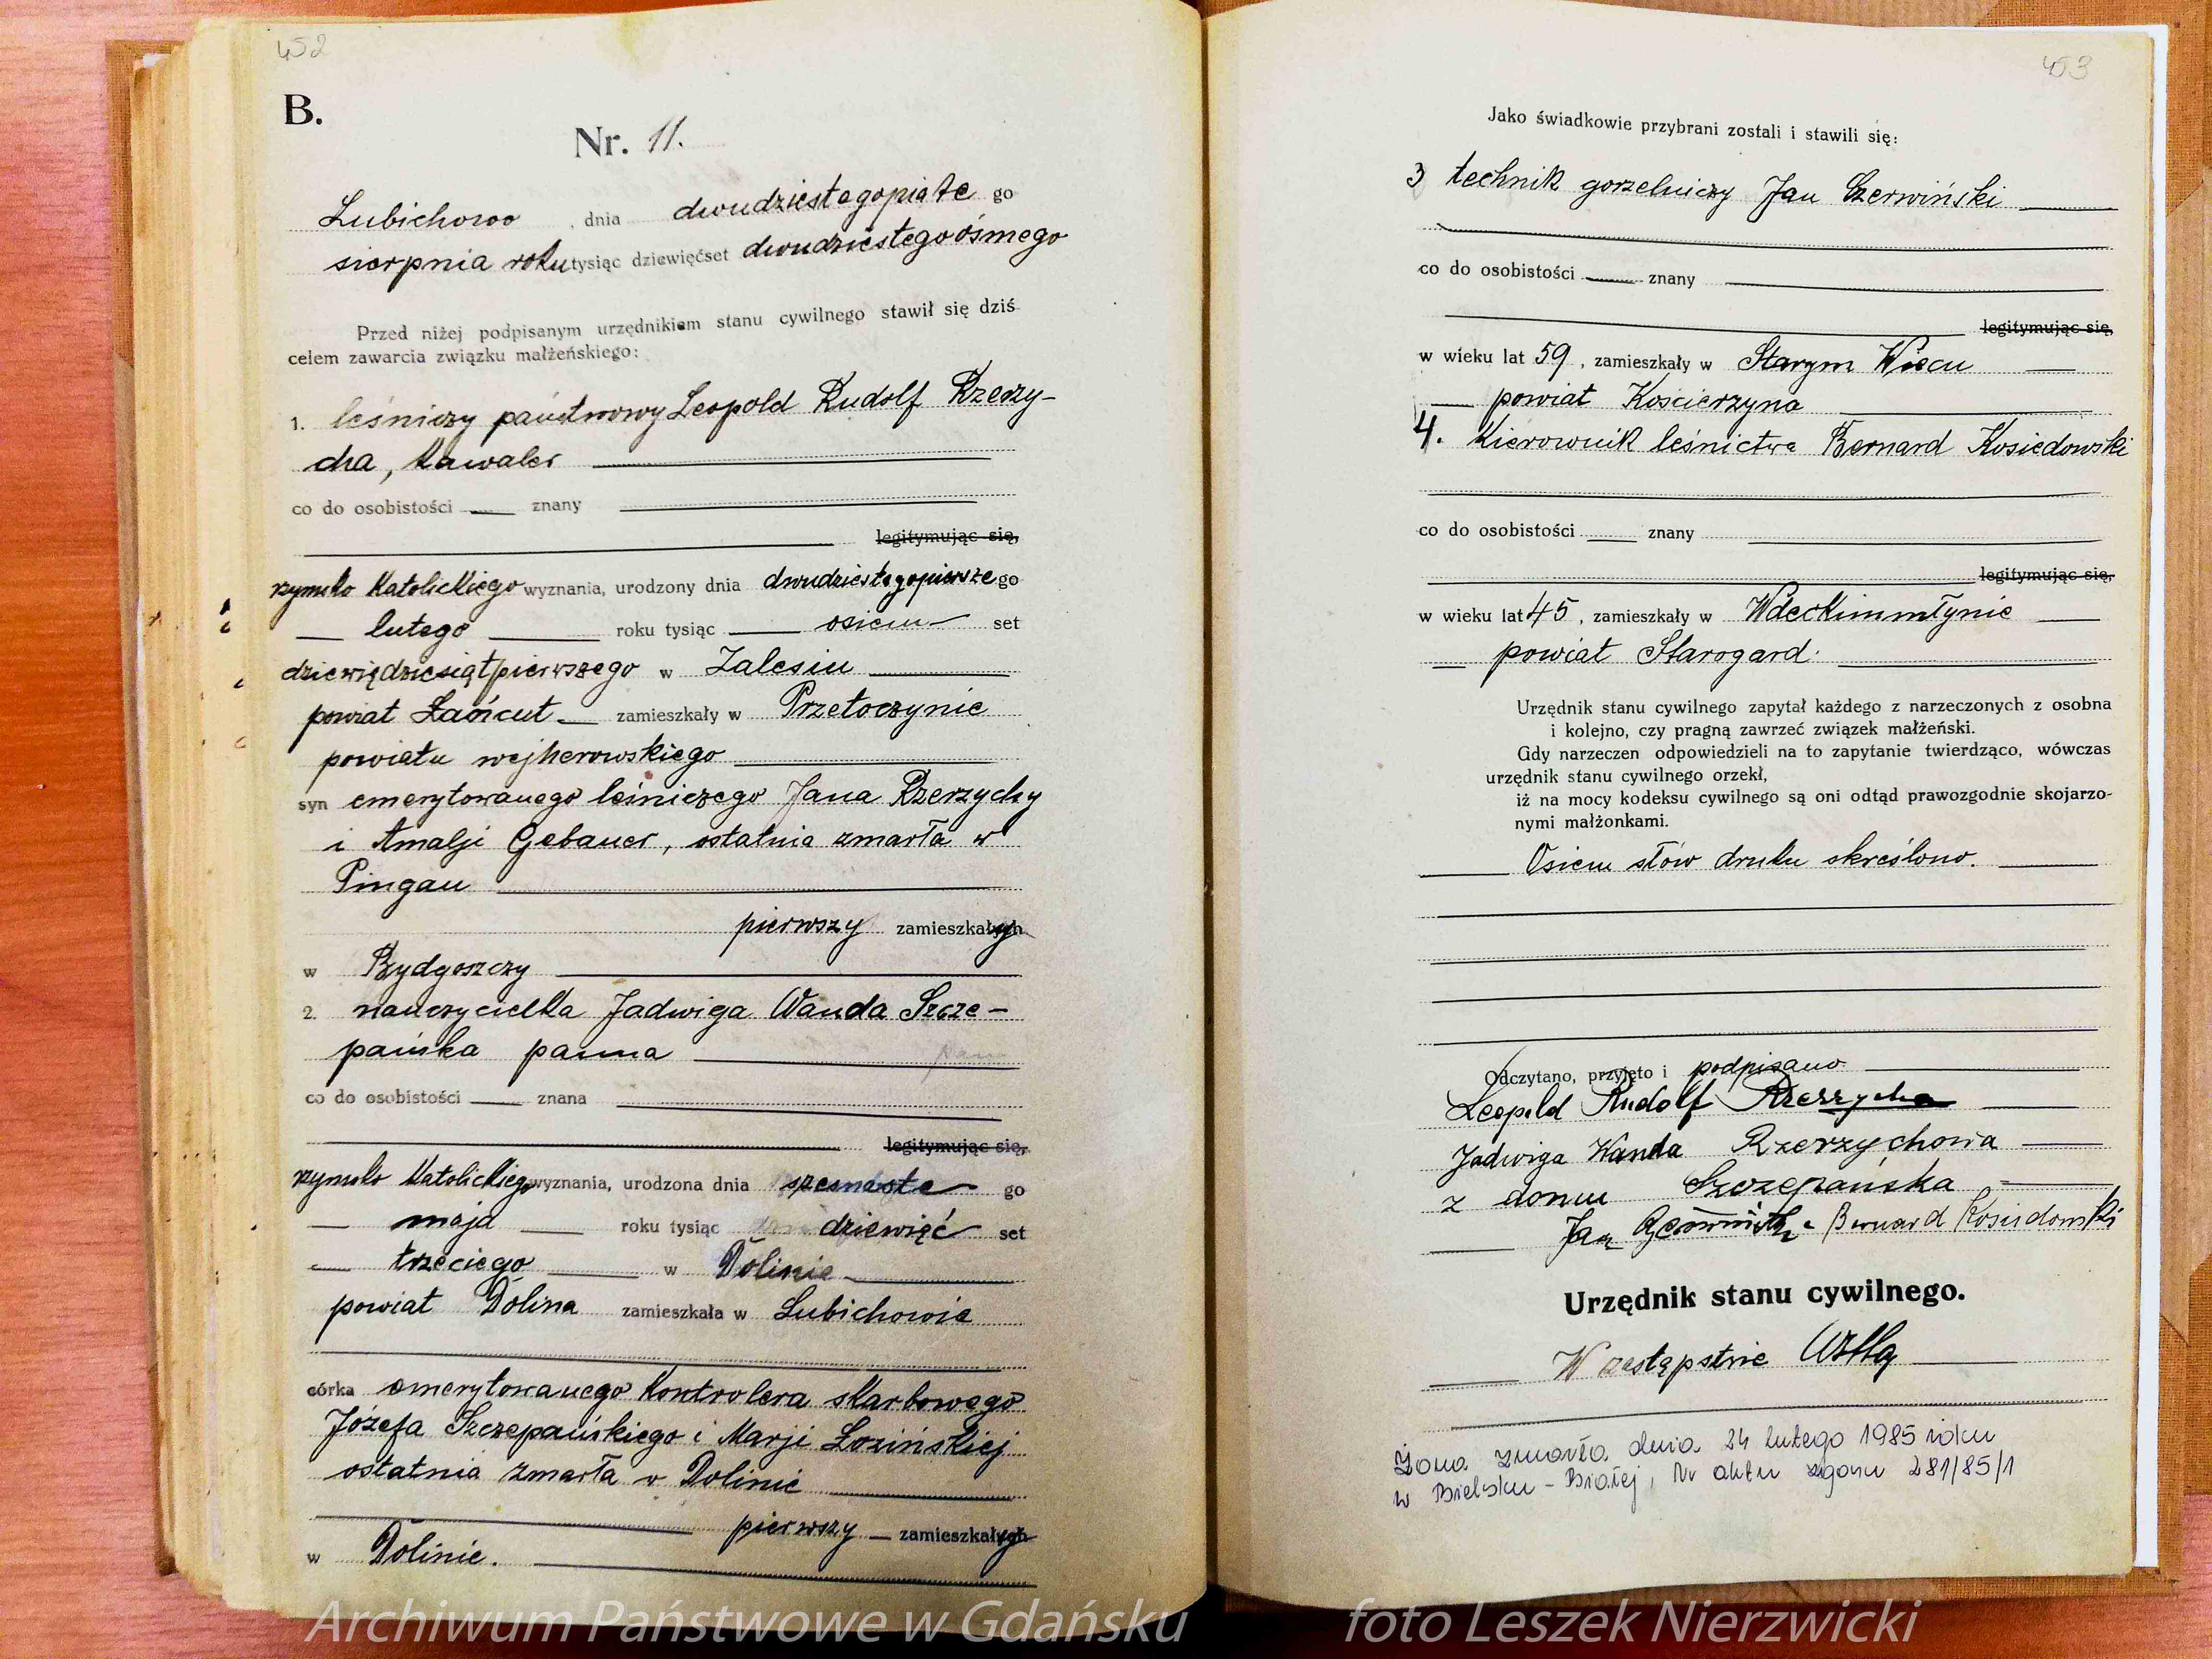 452
B.
Nr. 11.
Lubichowo , dnia dwudziestegopiąte go
sierpnia roku tysiąc dziewięćset dwudziestegoósmego
Przed niżej podpisanym urzędnikiem stanu cywilnego stawił się dziś
celem zawarcia związku małżeńskiego:
1. leśniczy państwowy Leopold Rudolf Rzerzy-
cha, kawaler
co do osobistości znany
legitymując się,
rzymsko katolickiego wyznania, urodzony dnia dwudziestegopierwsze go
lutego roku tysiąc osiem set
dziewiędziesiątpierwszego w Zalesiu
powiat Łańcut zamieszkały w Przetoczynie
powiatu wejherowskiego
syn emerytowanego leśniczego Jana Rzerzychy
i Amalji Gebauer, ostatnia zmarła w
Pingau
pierwszy zamieszkały
w Bydgoszczy
2. nauczycielka Jadwiga Wanda Szcze-
pańska panna
co do osobistości znana
legitymując się,
rzymsko katolickiego wyznania, urodzona dnia szesnaste go
maja roku tysiąc dziewięć set
trzeciego w Dolinie
powiat Dolina zamieszkała w Lubichowie
córka emerytowanego kontrolera skarbowego
Józefa Szczepańskiego i Marji Łozińskiej
ostatnia zmarła w Dolinie
pierwszy zamieszkały
w Dolinie.
453
Jako świadkowie przybrani zostali i stawili się:
3 technik gorzelniczy Jan Czerwiński
co do osobistości znany
legitymując się,
w wieku lat 59 , zamieszkały w Starym Wiecu
powiat Kościerzyna
4. Kierownik leśnictwa Bernard Kosiedowski
co do osobistości znany
legitymując się,
w wieku lat 45 , zamieszkały w Wdeckimmłynie
powiat Starogard.
Urzędnik stanu cywilnego zapytał każdego z narzeczonych z osobna
i kolejno, czy pragną zawrzeć związek małżeński.
Gdy narzeczen odpowiedzieli na to zapytanie twierdząco, wówczas
urzędnik stanu cywilnego orzekł,
iż na mocy kodeksu cywilnego są oni odtąd prawozgodnie skojarzo-
nymi małżonkami.
Osiem słów druku skreślono.
Odczytano, przyjęto i podpisano
Leopold Rudolf Rzerzycha
Jadwiga Wanda Rzerzychowa
z domu Szczepańska
Jan Bernard Kosiedowski
Urzędnik stanu cywilnego.
W zastępstwie
Żona zmarła dnia 24 lutego 1985 roku
w Bielsku-Białej, Nr aktu zgonu 281/85/1
Archiwum Państwowe w Gdańsku
foto Leszek Nierzwicki